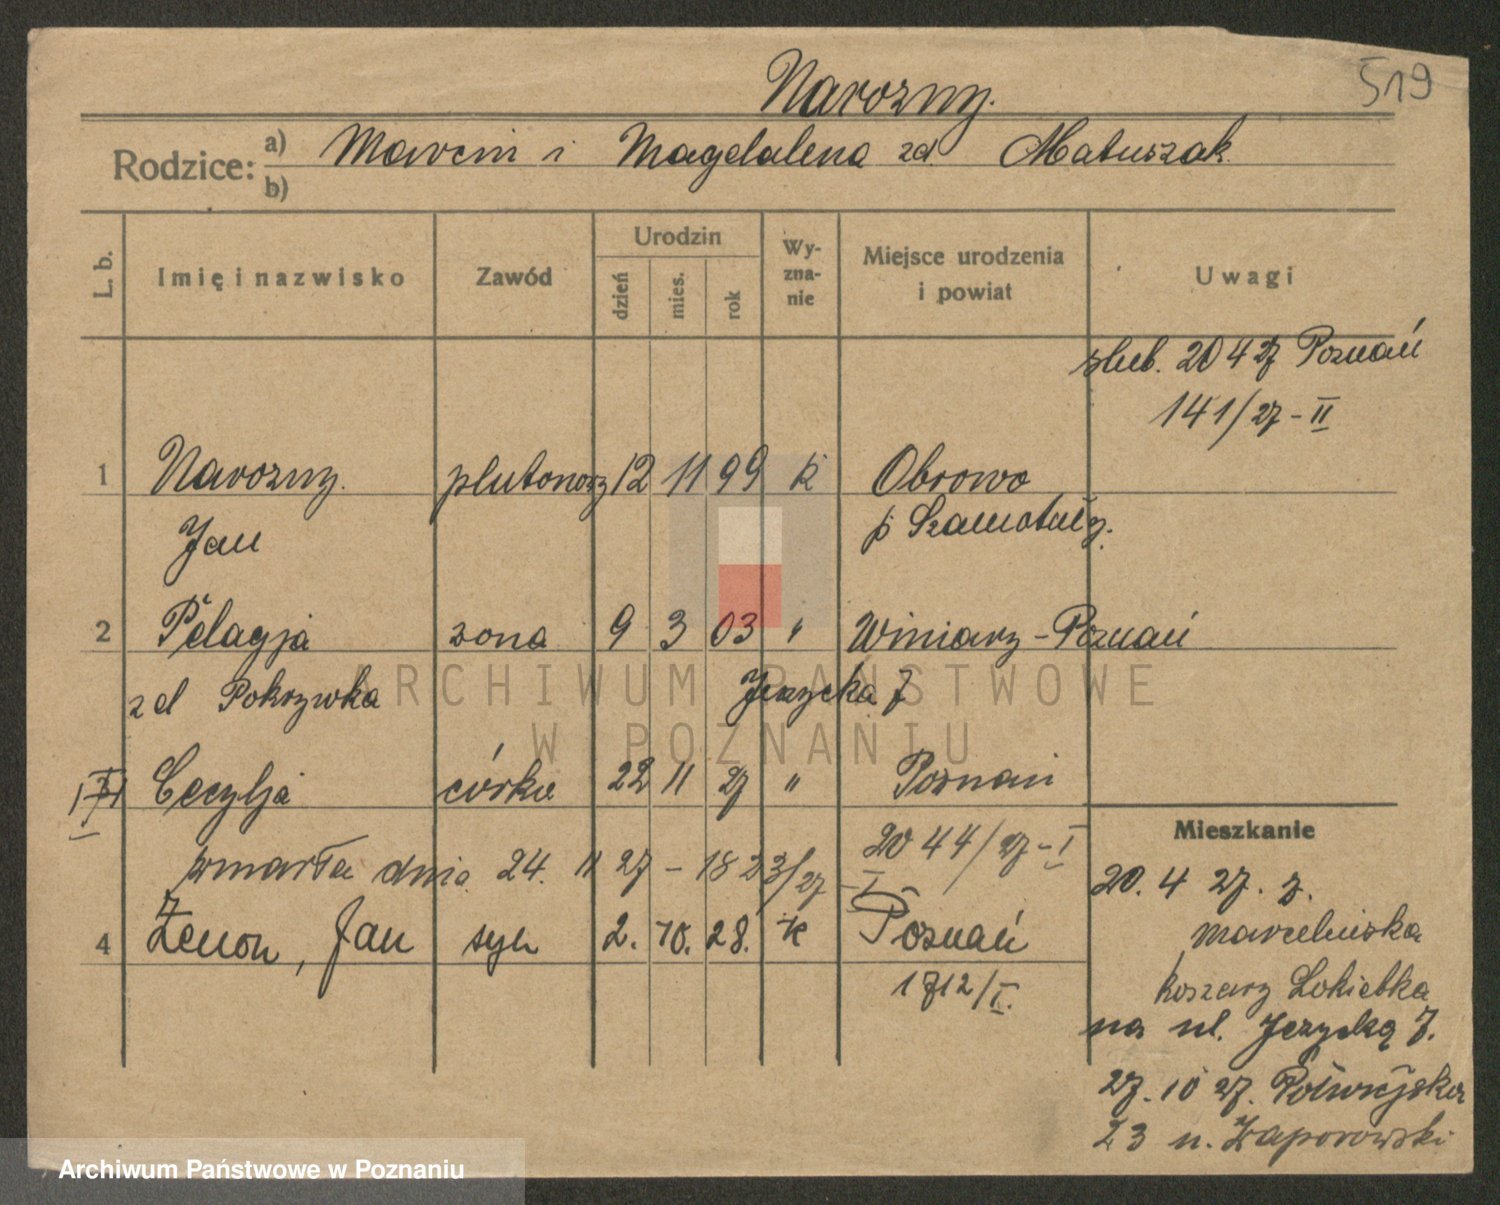 Narozny.
519
Rodzice: a) Marcin i Magdalena zd Matuszak
b)
L. b.
Imię i nazwisko
Zawód
Urodzin
dzień
mies.
rok
Wy-
zna-
nie
Miejsce urodzenia
i powiat
Uwagi
slub. 20 4 27 Poznań
141/27 - II
1 Narozny. plutonorz 12 11 99 k Obrowo
Jan p Szamotuły.
2 Pelagja zona 9 3 03 " Winiary - Poznań
zd Pokrzywka Jezycka 7
Cecylja córka 22 11 27 " Poznań
2044/27 - I
zmarła dnia 24. 11 27 - 1823/27 - I
4 Zenon, Jan syn 2. 10. 28. k Poznań
1712/I.
Mieszkanie
20. 4 27. z.
marcelinska
koszary Lokietka
na ul. Jezycką 7.
27. 10 27.
23 n. Zaporowski
ARCHIWUM PAŃSTWOWE
W POZNANIU
Archiwum Państwowe w Poznaniu